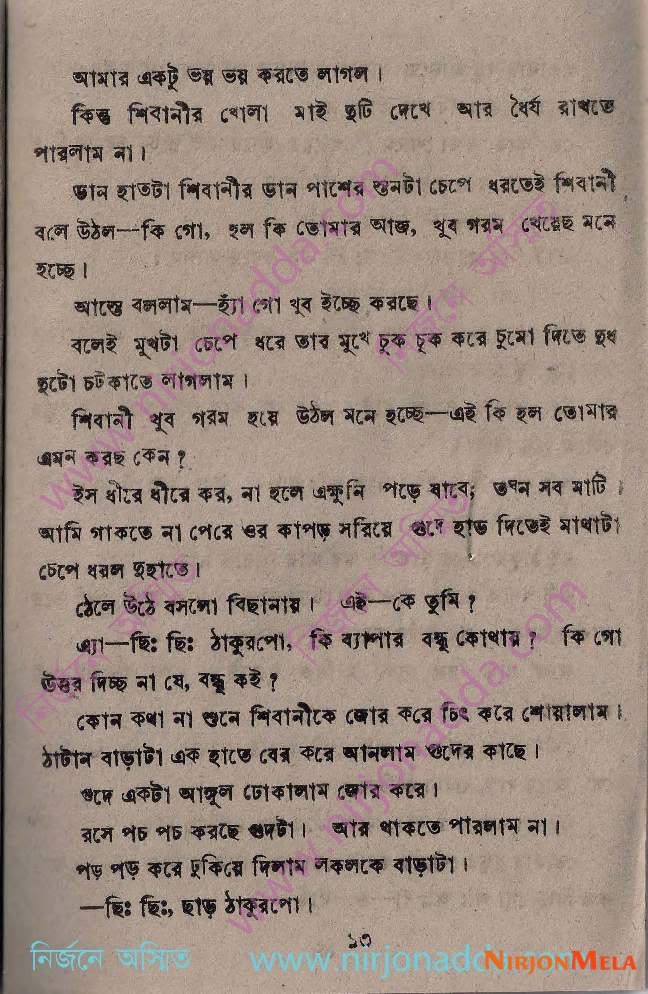 আমার একটু ভয় ভয় করতে লাগল।
কিন্তু শিবানীর খোলা মাই দুটি দেখে আর ধৈর্য রাখতে
পারলাম না।
ডান হাতটা শিবানীর ডান পাশের স্তনটা চেপে ধরতেই শিবানী
বলে উঠল—কি গো, হল কি তোমার আজ, খুব গরম খেয়েছ মনে
হচ্ছে।
আস্তে বললাম—হ্যাঁ গো খুব ইচ্ছে করছে।
বলেই মুখটা চেপে ধরে তার মুখে চুক চুক করে চুমো দিতে দুধ
দুটো চটকাতে লাগলাম।
শিবানী খুব গরম হয়ে উঠল মনে হচ্ছে—এই কি হল তোমার
এমন করছ কেন?
ইস ধীরে ধীরে কর, না হলে এক্ষুনি পড়ে যাবে; তখন সব মাটি।
আমি থাকতে না পেরে ওর কাপড় সরিয়ে গুদে হাত দিতেই মাথাটা
চেপে ধরল দুহাতে।
ঠেলে উঠে বসলো বিছানায়। এই—কে তুমি?
এ্যা—ছিঃ ছিঃ ঠাকুরপো, কি ব্যাপার বন্ধু কোথায়? কি গো
উত্তর দিচ্ছ না যে, বন্ধু কই?
কোন কথা না শুনে শিবানীকে জোর করে চিৎ করে শোয়ালাম।
ঠাটান বাড়াটা এক হাতে বের করে আনলাম গুদের কাছে।
গুদে একটা আঙ্গুল ঢোকালাম জোর করে।
রসে পচ পচ করছে গুদটা। আর থাকতে পারলাম না।
পড় পড় করে ঢুকিয়ে দিলাম লকলকে বাড়াটা।
—ছিঃ ছিঃ, ছাড় ঠাকুরপো।
১৩
নির্জনে অস্মিত www.nirjonadda.com NIRJONMELA